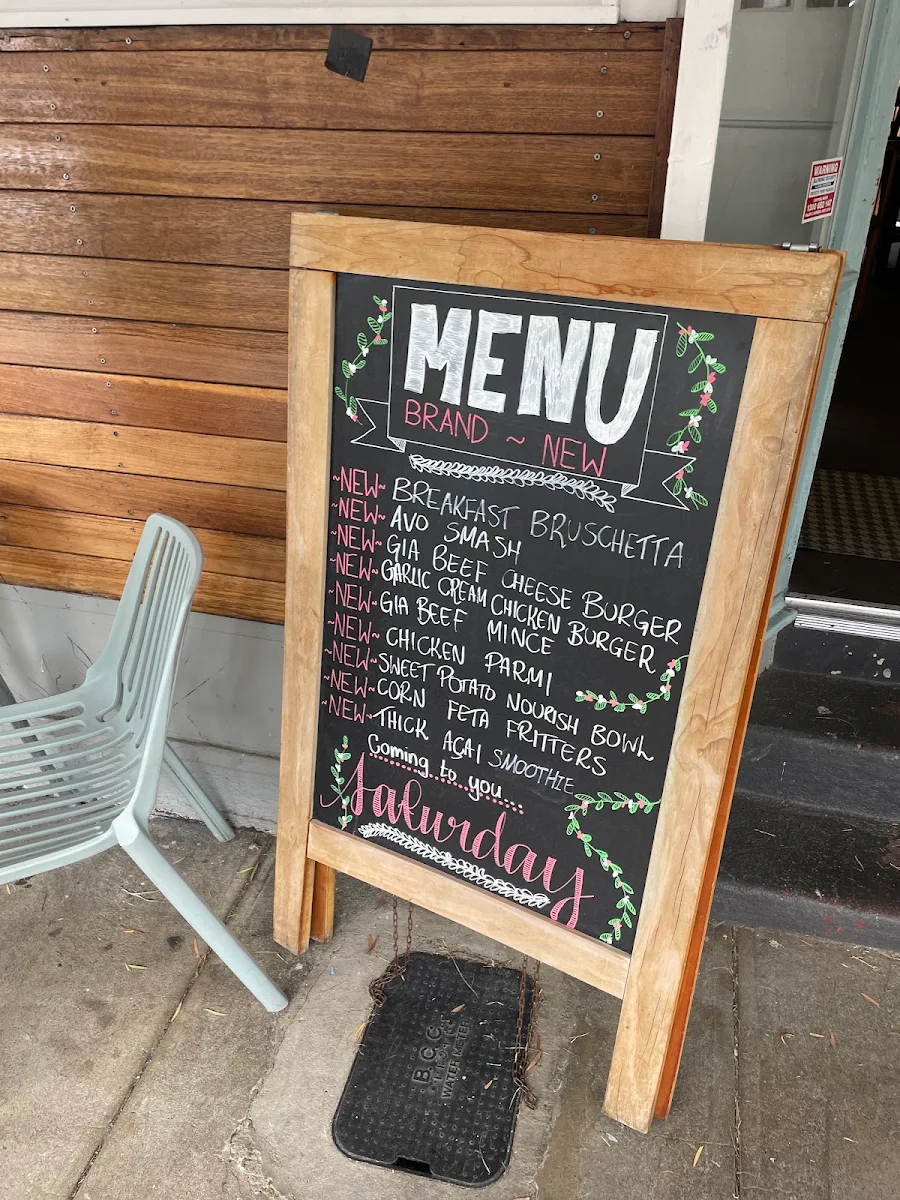 MENU
BRAND ~ NEW
~NEW~ BREAKFAST BRUSCHETTA
~NEW~ AVO SMASH
~NEW~ GIA BEEF CHEESE BURGER
~NEW~ GARLIC CREAM CHICKEN BURGER
~NEW~ GIA BEEF MINCE
~NEW~ CHICKEN PARMI
~NEW~ SWEET POTATO NOURISH BOWL
~NEW~ CORN FETA FRITTERS
~NEW~ THICK AÇAI SMOOTHIE
Coming to you...
Saturday
WARNING
B.C.C.
WATER METER